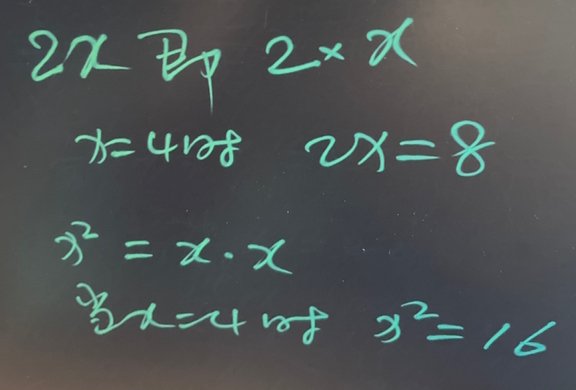 2x 即 2×x
x=4时 2x=8
x² = x·x
当x=4时 x²=16